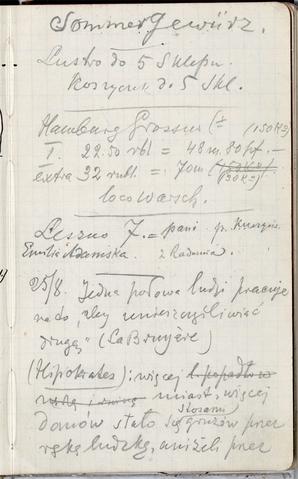 Sommergewürz.
Lustro do 5 Sklepu.
Koszyczek do 5 Skl.
Hamburg Grossm (± (150 Kg)
I. 22.50 rbl = 48 m. 80 pf. —
extra 32 rubl. = 70 m (150 Kg)
loco Warsch.
Leszno 7. = pani
Emilia Adamska z Radomia.
25/8. Jedna połowa ludzi pracuje
na to, aby unieszczęśliwiać
drugą" (La Bruyère)
(Hipokrates): więcej
miast, więcej
domów stało się stosami gruzów przez
rękę ludzką, aniżeli przez